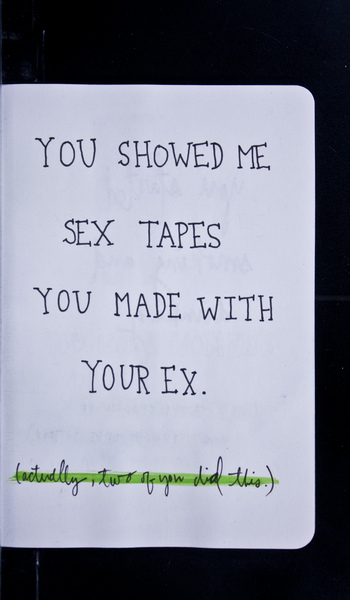 YOU SHOWED ME
SEX TAPES
YOU MADE WITH
YOUR EX.
(actually, two of you did this.)